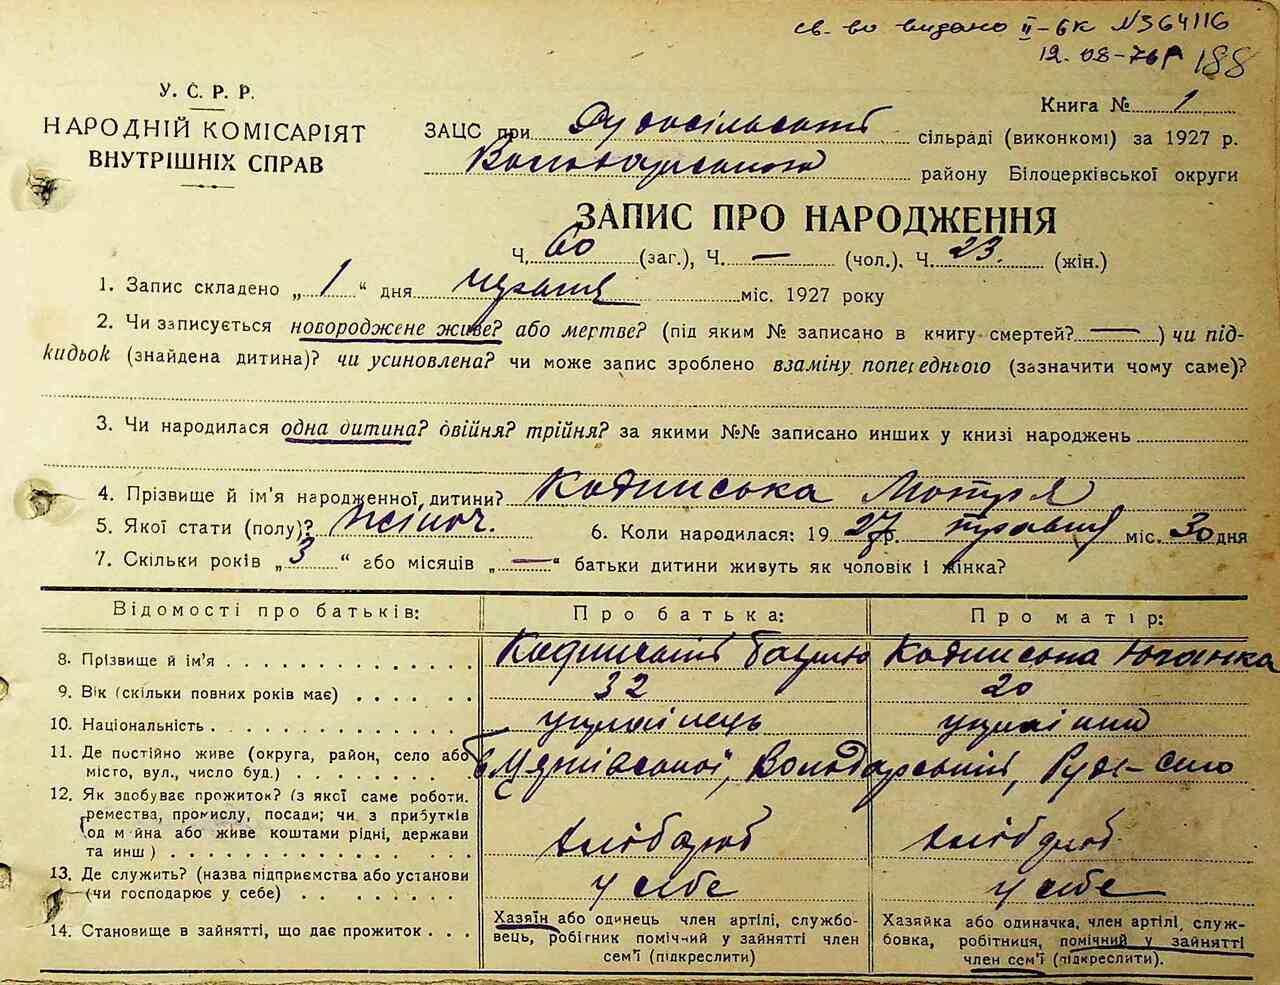 св-во видано II-БК №364116
12.08-76р 188
У. С. Р. Р.
НАРОДНІЙ КОМІСАРІЯТ
ВНУТРІШНІХ СПРАВ
Книга № 1
ЗАЦС при Рудосільській сільраді (виконкомі) за 1927 р.
Володарського району Білоцерківської округи
ЗАПИС ПРО НАРОДЖЕННЯ
Ч. 60 (заг.), Ч. — (чол.), Ч. 23. (жін.)
1. Запис складено „ 1 “ дня червня міс. 1927 року
2. Чи записується новороджене живе? або мертве? (під яким № записано в книгу смертей? — ) чи під-
кидьок (знайдена дитина)? чи усиновлена? чи може запис зроблено взаміну попереднього (зазначити чому саме)?
3. Чи народилася одна дитина? двійня? трійня? за якими №№ записано инших у книзі народжень
4. Прізвище й ім'я народженної дитини? Кадинська Мотря
5. Якої стати (полу)? жіноч. 6. Коли народилася: 1927 р. травня міс. 30 дня
7. Скільки років „ 3 “ або місяців „ — “ батьки дитини живуть як чоловік і жінка?
Відомості про батьків: Про батька: Про матір:
8. Прізвище й ім'я Кадинський Кадинська
9. Вік (скільки повних років має) 32 20
10. Національність українець
11. Де постійно живе (округа, район, село або
місто, вул., число буд.) Володарський, Руде-Село
12. Як здобуває прожиток? (з якої саме роботи.
ремества, промислу, посади; чи з прибутків
од майна або живе коштами рідні, держави
та инш) хлібороб хлібороб
13. Де служить? (назва підприємства або установи
(чи господарює у себе) у себе у себе
14. Становище в зайнятті, що дає прожиток
Хазяїн або одинець член артілі, службо-
вець, робігник помічний у зайнятті член
сем'ї (підкреслити)
Хазяйка або одиначка, член артілі, служ-
бовка, робітниця, помічний у зайнятті
член сем'ї (підкреслити).